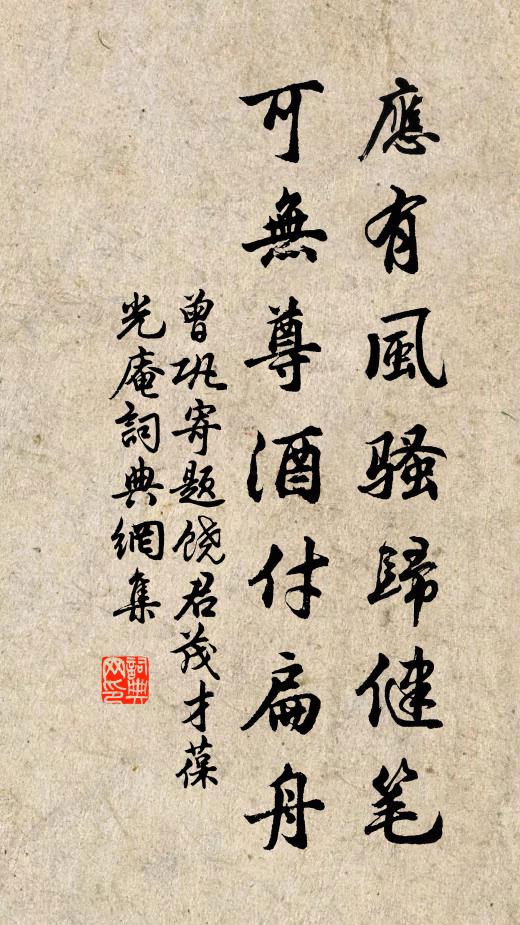 應有風騷歸健笔
可無尊酒付扁舟
曾巩寄题饶君茂才葆
光庵詞典網集
詞典
网印